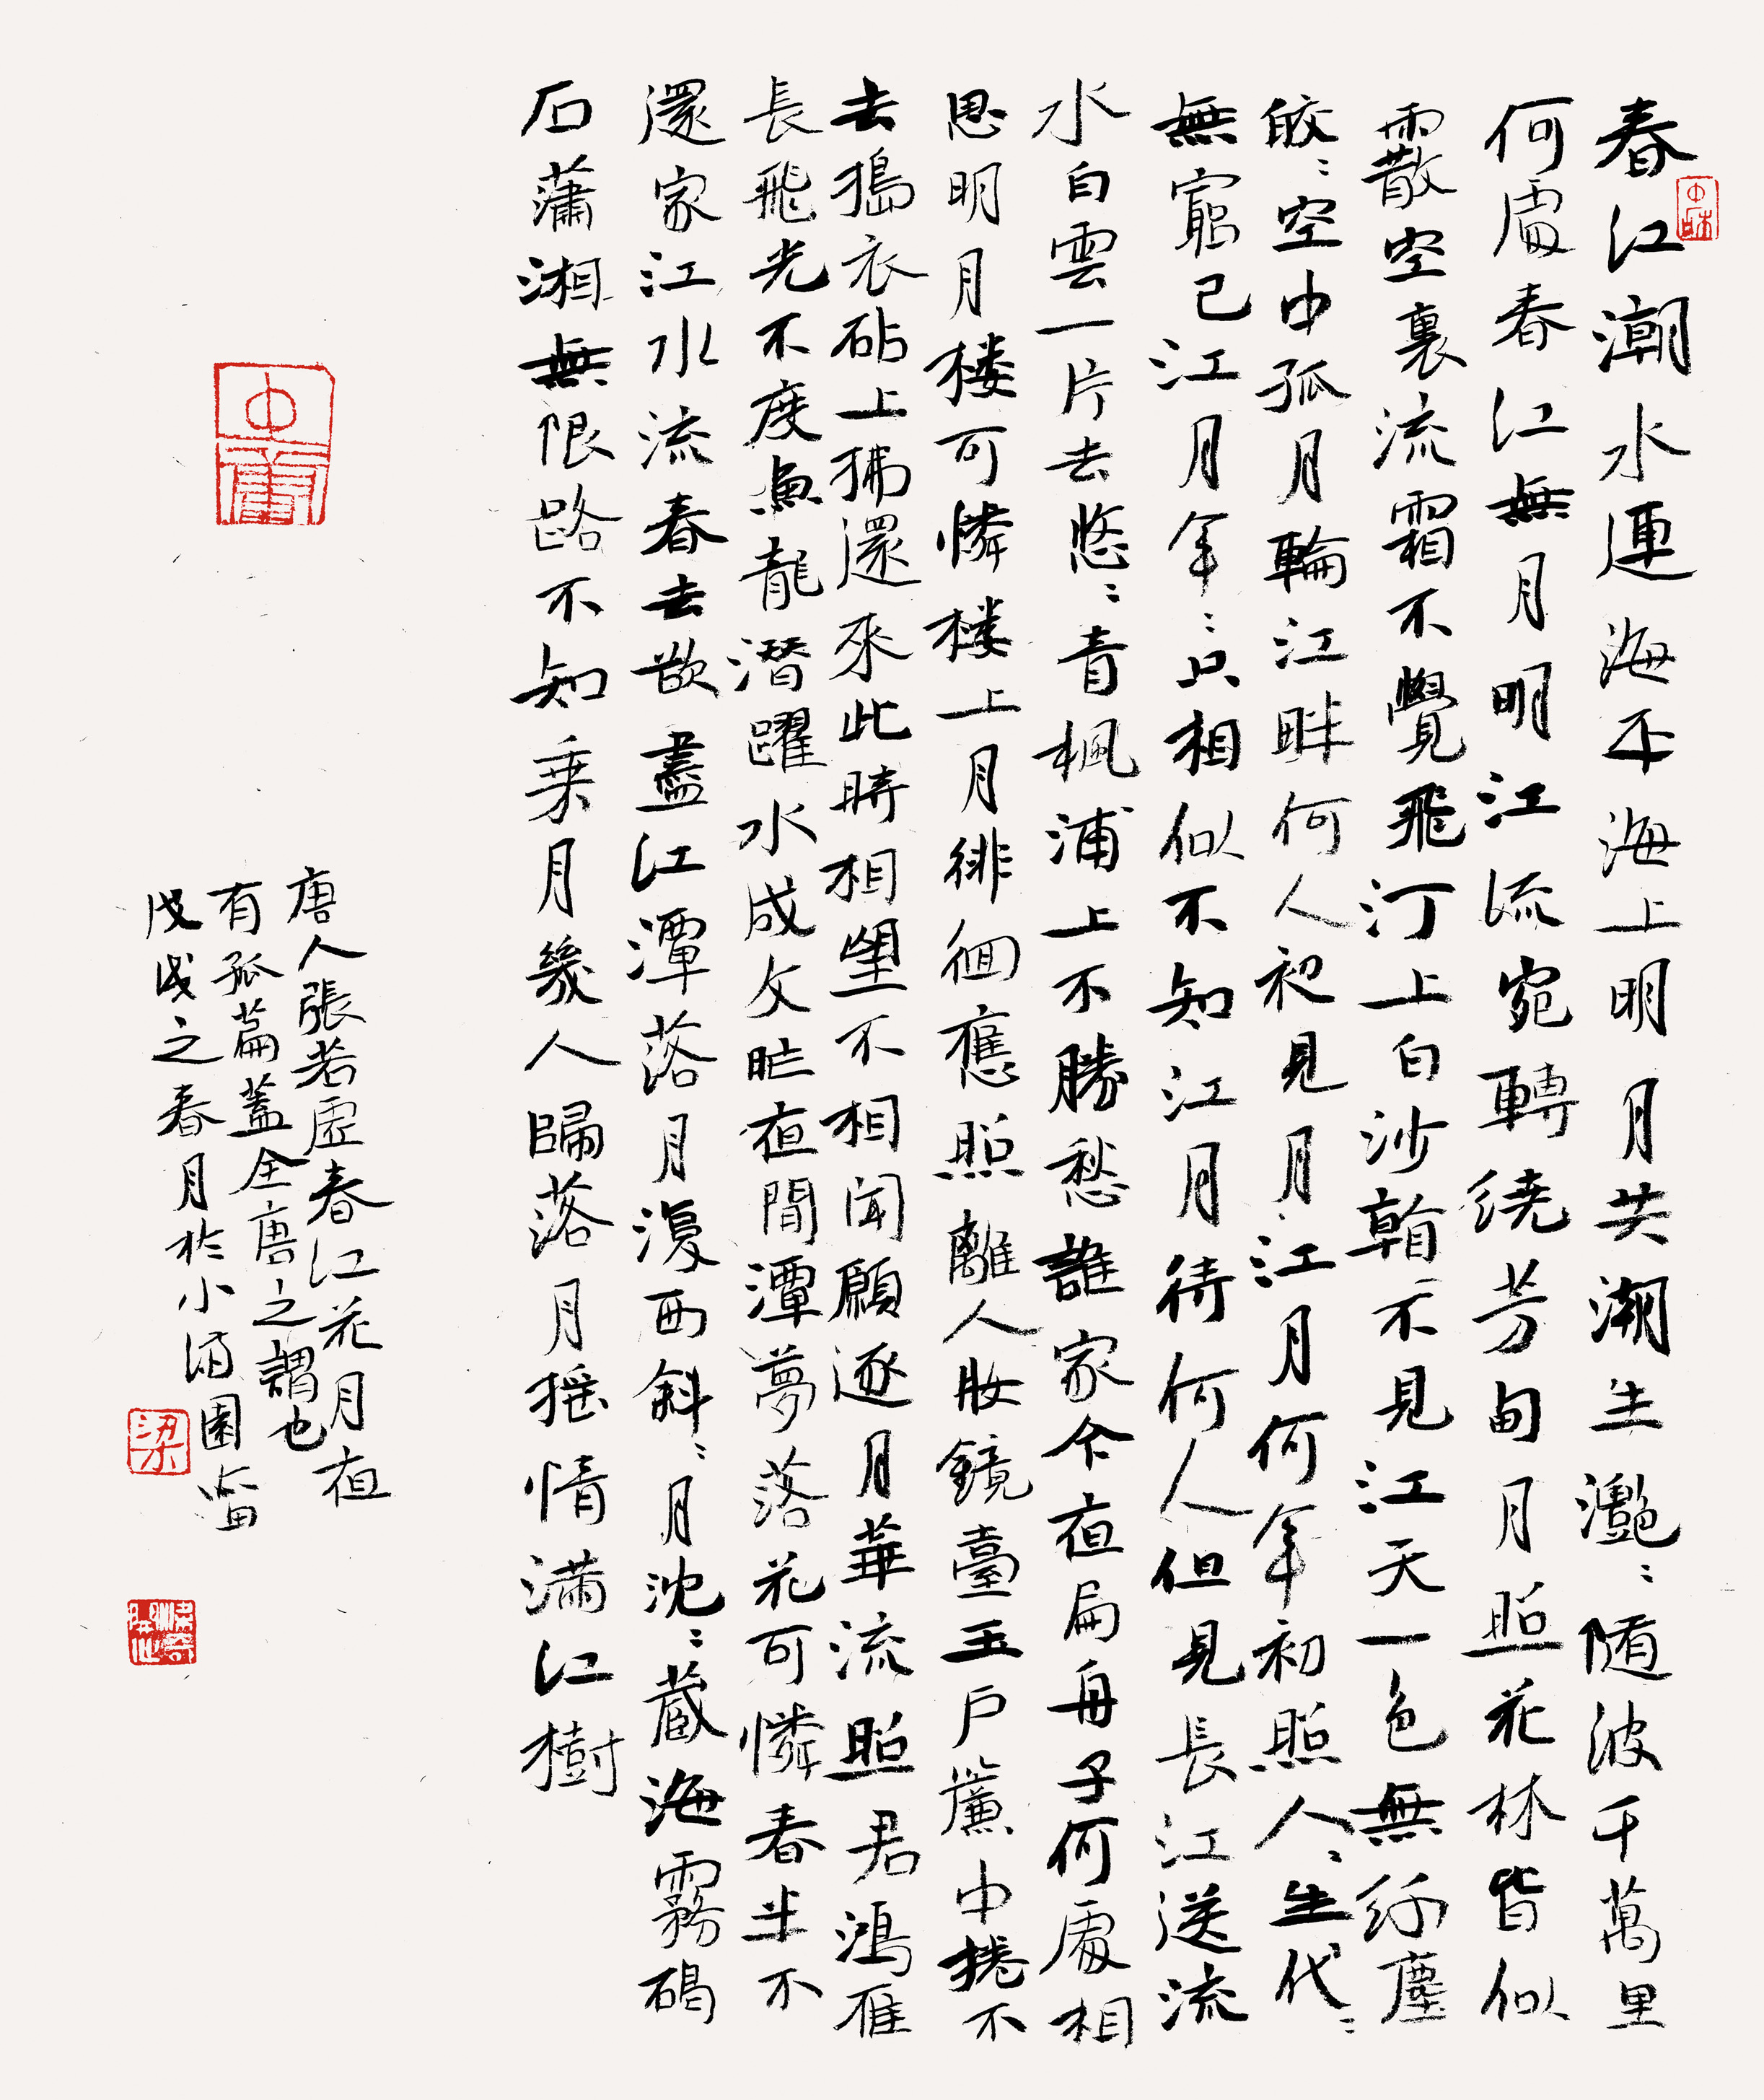 春江潮水連海平海上明月共潮生灧〻随波千萬里
何處春江無月明江流宛轉繞芳甸月照花林皆似
霰空裏流霜不覺飛汀上白沙看不見江天一色無纤塵
皎〻空中孤月輪江畔何人初見月〻江月何年初照人〻生代〻
無窮已江月年〻只相似不知江月待何人但見長江送流
水白雲一片去悠〻青楓浦上不勝愁誰家今夜扁舟子何處相
思明月楼可憐楼上月徘徊應照離人妝鏡臺玉户簾中捲不
去搗衣砧上拂還來此時相望不相聞願逐月華流照君鴻雁
長飛光不度魚龍潛躍水成文昨夜間潭夢落花可憐春半不
還家江水流春去欲盡江潭落月復西斜〻月沈〻藏海霧碣
石瀟湘無限路不知乘月幾人歸落月摇情满江樹
唐人張若虛春江花月夜
有孤篇蓋全唐之謂也
戊戌之春月於小園
梁